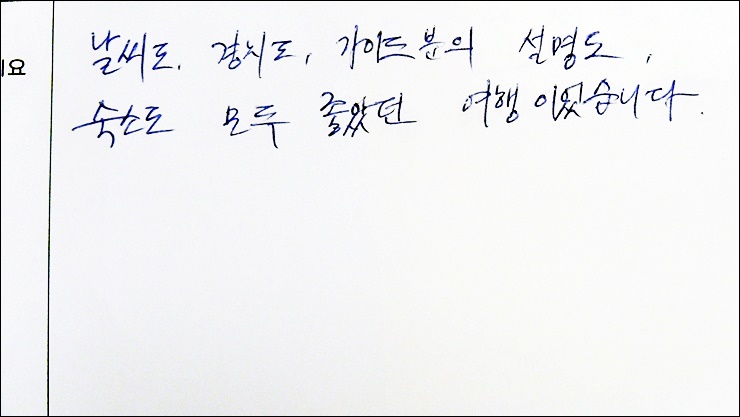 날씨도, 경치도, 가이드분의 설명도,
요
숙소도 모두 좋았던 여행이었습니다.